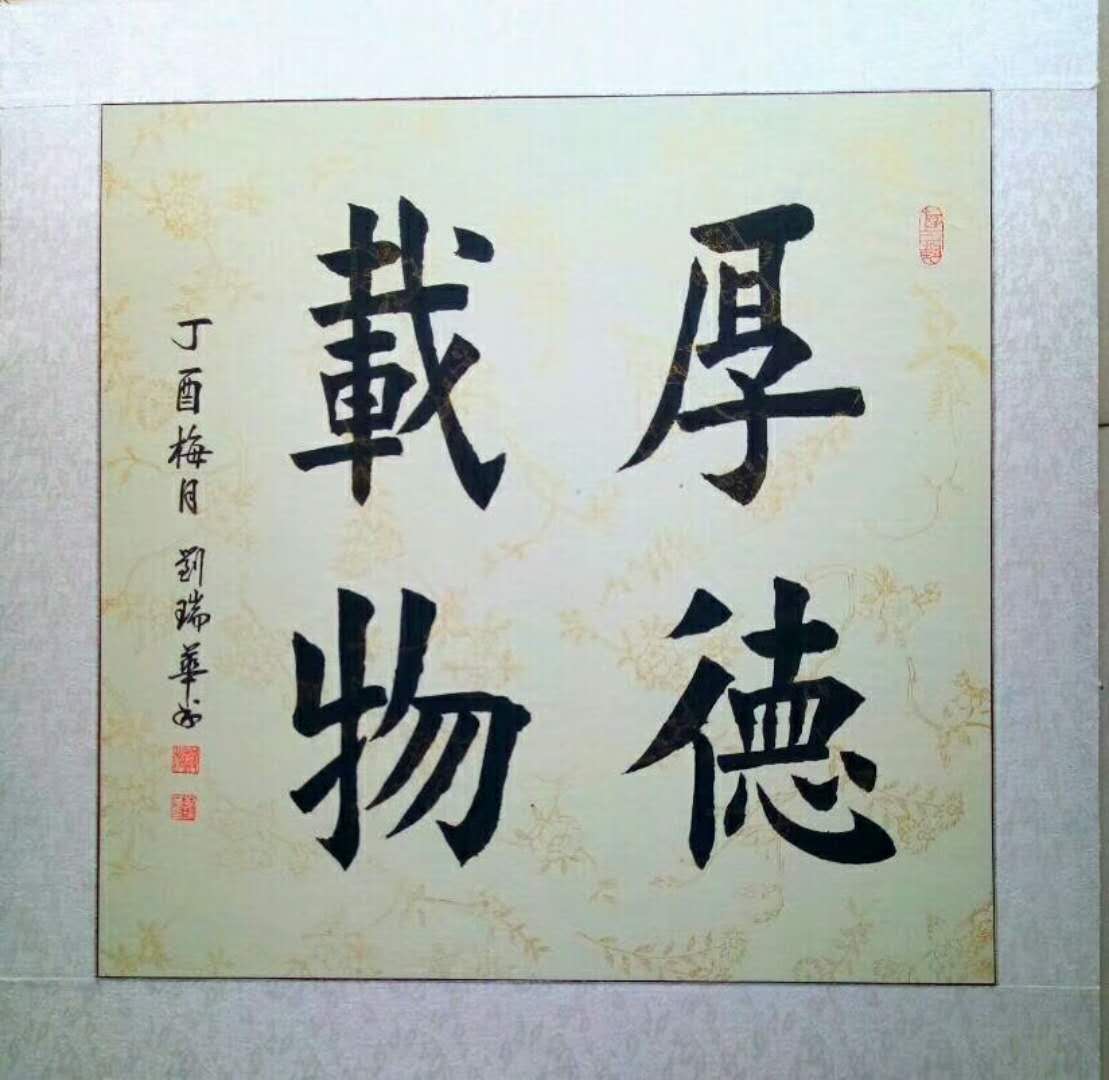 厚德
載物
丁酉梅月 劉瑞華书